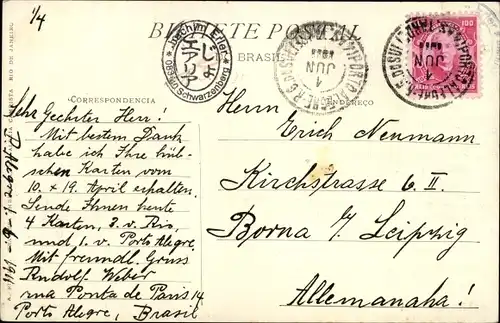 1/4
BILHETE POSTAL
BRASIL
Joachim Erler
08340 Schwarzenberg
じょ
エアリア
PORTO ALEGRE
1 JUN
100
CORRESPONDENCIA
ENDEREÇO
RIO DE JANEIRO
Sehr Geehrter Herr!
Mit bestem Dank
habe ich Ihre hüb-
schen Karten vom
10. + 19. April erhalten.
Sende Ihnen heute
4 Karten, 3. v. Rio,
und 1. v. Porto Alegre.
Mit freundl. Gruss
Rudolf Weber
rua Ponta de Paris 14
Porto Alegre, Brasil
P. Alegre 1.-6-1911
Herrn
Erich Neumann
Kirchstrasse 6. II.
Borna b/ Leipzig
Allemanaha!